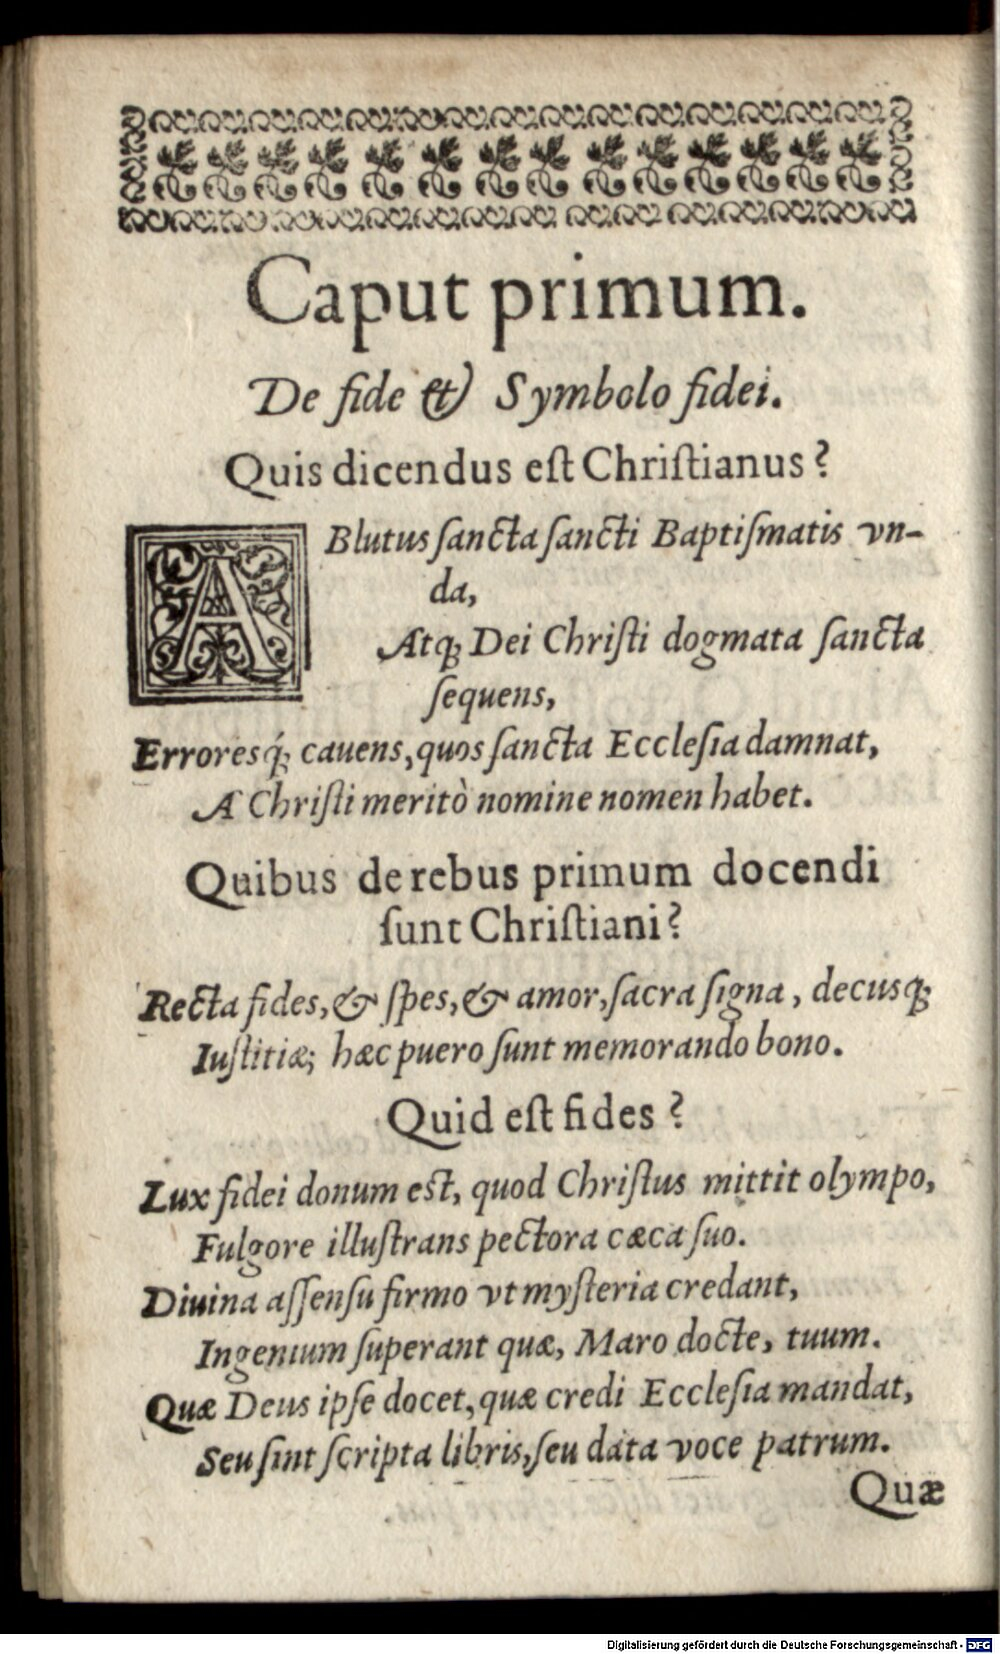 Caput primum.
De fide & Symbolo fidei.
Quis dicendus eſt Chriſtianus?
ABlutus ſancta ſancti Baptiſmatis vn-
da,
Atq; Dei Chriſti dogmata ſancta
ſequens,
Erroresq́; cauens, quos ſancta Eccleſia damnat,
A Chriſti meritò nomine nomen habet.
Quibus de rebus primum docendi
ſunt Chriſtiani?
Recta fides, & ſpes, & amor, ſacra ſigna, decusq;
Iuſtitiæ; hæc puero ſunt memorando bono.
Quid eſt fides?
Lux fidei donum eſt, quod Chriſtus mittit olympo,
Fulgore illuſtrans pectora cæca ſuo.
Diuina aſſenſu firmo vt myſteria credant,
Ingenium ſuperant quæ, Maro docte, tuum.
Quæ Deus ipſe docet, quæ credi Eccleſia mandat,
Seu ſint ſcripta libris, ſeu data voce patrum.
Quæ
Digitalisierung gefördert durch die Deutsche Forschungsgemeinschaft - DFG